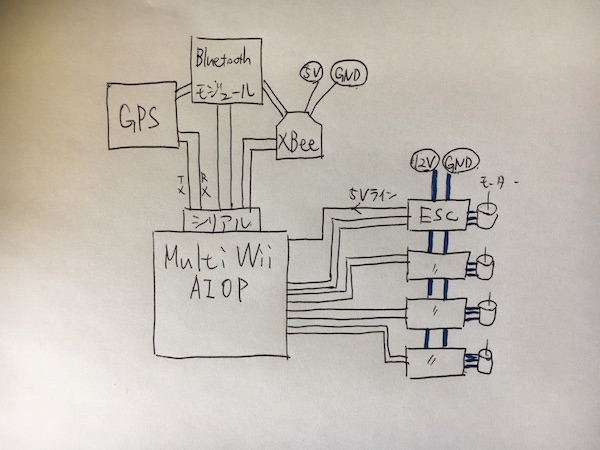 Bluetooth
モジュール
5V
GND
GPS
XBee
TX
RX
12V
GND
モーター
5Vライン
ESC
シリアル
Multi Wii
AIOP
〃
〃
〃